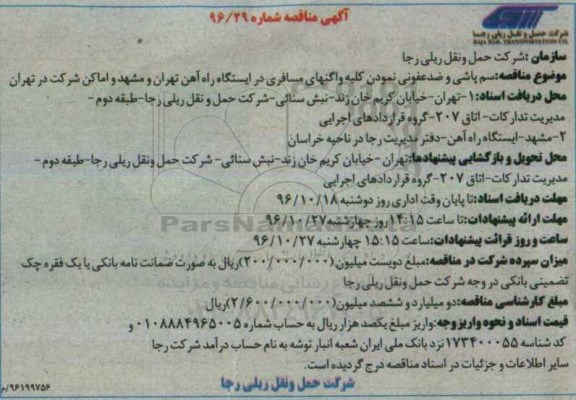 آگهی مناقصه شماره ۹۶/۲۹
شرکت حمل و نقل ریلی رجا
RAJA RAIL TRANSPORTATION CO.
سازمان :شرکت حمل ونقل ریلی رجا
موضوع مناقصه:سم پاشی و ضدعفونی نمودن کلیه واگنهای مسافری در ایستگاه راه آهن تهران و مشهد و اماکن شرکت در تهران
محل دریافت اسناد:۱-تهران-خیابان کریم خان زند-نبش سنائی-شرکت حمل و نقل ریلی رجا-طبقه دوم-
مدیریت تدارکات- اتاق ۲۰۷-گروه قراردادهای اجرایی
۲-مشهد-ایستگاه راه آهن-دفتر مدیریت رجا در ناحیه خراسان
محل تحویل و بازگشایی پیشنهادها:تهران -خیابان کریم خان زند-نبش سنائی- شرکت حمل ونقل ریلی رجا-طبقه دوم -
مدیریت تدارکات-اتاق ۲۰۷-گروه قراردادهای اجرایی
مهلت دریافت اسناد:تا پایان وقت اداری روز دوشنبه ۹۶/۱۰/۱۸
مهلت ارائه پیشنهادات:تا ساعت ۱۴:۱۵روز چهارشنبه ۹۶/۱۰/۲۷
ساعت و روز قرائت پیشنهادات:ساعت ۱۵:۱۵ چهارشنبه ۹۶/۱۰/۲۷
میزان سپرده شرکت در مناقصه:مبلغ دویست میلیون(۲۰۰/۰۰۰/۰۰۰)ریال به صورت ضمانت نامه بانکی یا یک فقره چک
تضمینی بانکی در وجه شرکت حمل ونقل ریلی رجا
مبلغ کارشناسی مناقصه:دو میلیارد و ششصد میلیون(۲/۶۰۰/۰۰۰/۰۰۰)ریال
قیمت اسناد و نحوه واریز وجه:واریز مبلغ یکصد هزار ریال به حساب شماره ۰۱۰۸۸۸۴۹۶۵۰۰۵ و
کد شناسه ۱۷۳۴۰۰۰۵۵ نزد بانک ملی ایران شعبه انبار توشه به نام حساب درآمد شرکت رجا
سایر اطلاعات و جزئیات در اسناد مناقصه درج گردیده است.
شرکت حمل ونقل ریلی رجا
۹۶۱۹۹۷۵۶/م